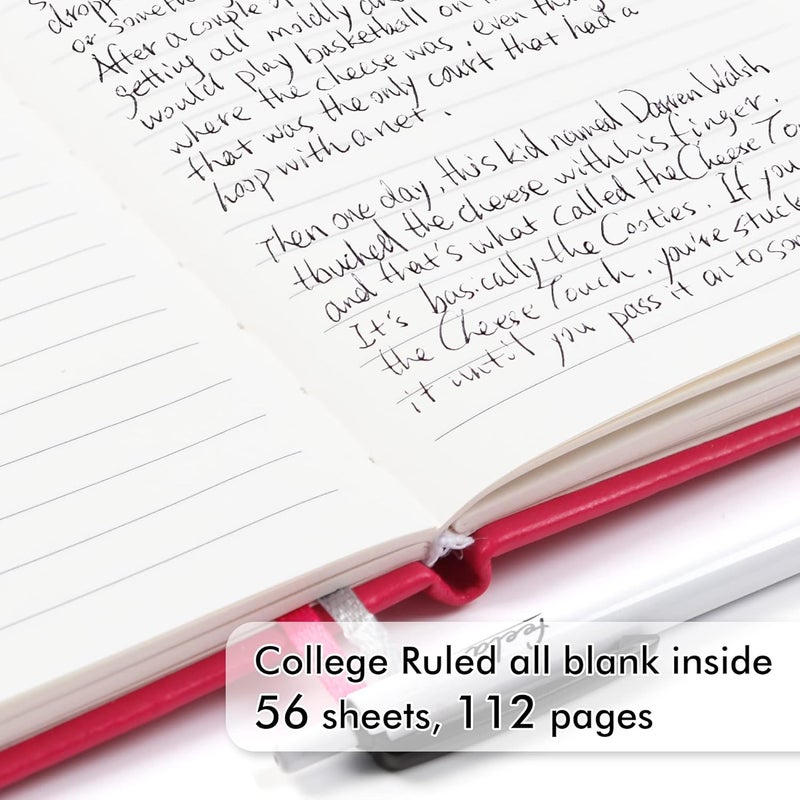 dropp
or someth
After a couple
getting all moldy an
would play basketball on
where the cheese was, even tho
that was the only court that had a
hoop with a net.
Then one day, this kid named Darren Walsh
touched the cheese with his finger.
and that's what called the Cheese To
It's basically the Cooties. If you
the Cheese Touch, you're stuck
it until you pass it on to som
feela
College Ruled all blank inside
56 sheets, 112 pages